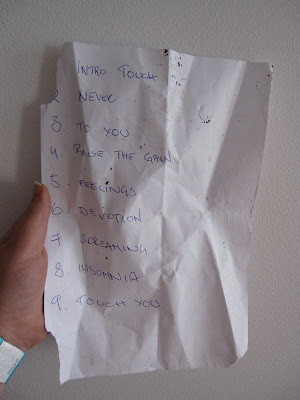 INTRO. TOUCH
2 NEVER
3 TO YOU
4 RAISE THE GAIN
5. FEELINGS
6. DEVOTION
7 SCREAMING
8. INSOMNIA
9. TOUCH YOU